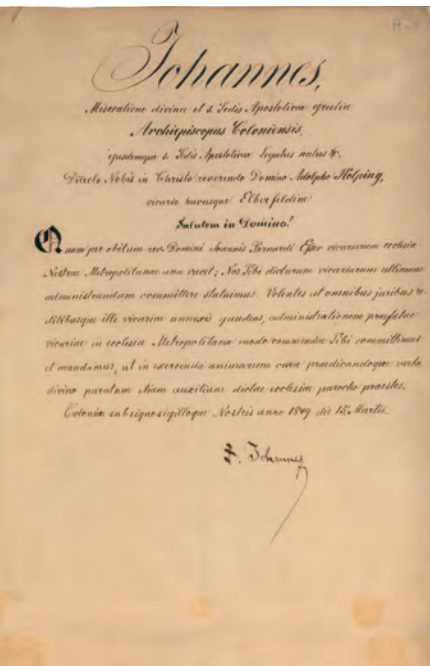 Johannes,
Miseratione divina et S. Sedis Apostolicae gratia
Archiepiscopus Coloniensis,
ejusdemque S. Sedis Apostolicae Legatus natus &c.
Dilecto Nobis in Christo reverendo Domino Adolpho Kolping,
vicario hucusque Elberfeldiae
Salutem in Domino!
Quum per obitum rev. Domini Joannis Bernardi vicariarum ecclesiae
Nostrae Metropolitanae una vacet; Nos Tibi dictam vicariam ulterius
administrandam committere statuimus. Volentes ut omnibus juribus re-
ditibusque illi vicariae annexis gaudeas, administrationem praefatae
vicariae in ecclesia Metropolitana modo commendae Tibi committimus
et mandamus, ut in exercenda animarum cura praedicandoque verbo
divino paratum etiam auxilium dictae ecclesiae parocho praestes.
Coloniae sub signo sigilloque Nostris anno 1849 die 15. Martii.
Johannes